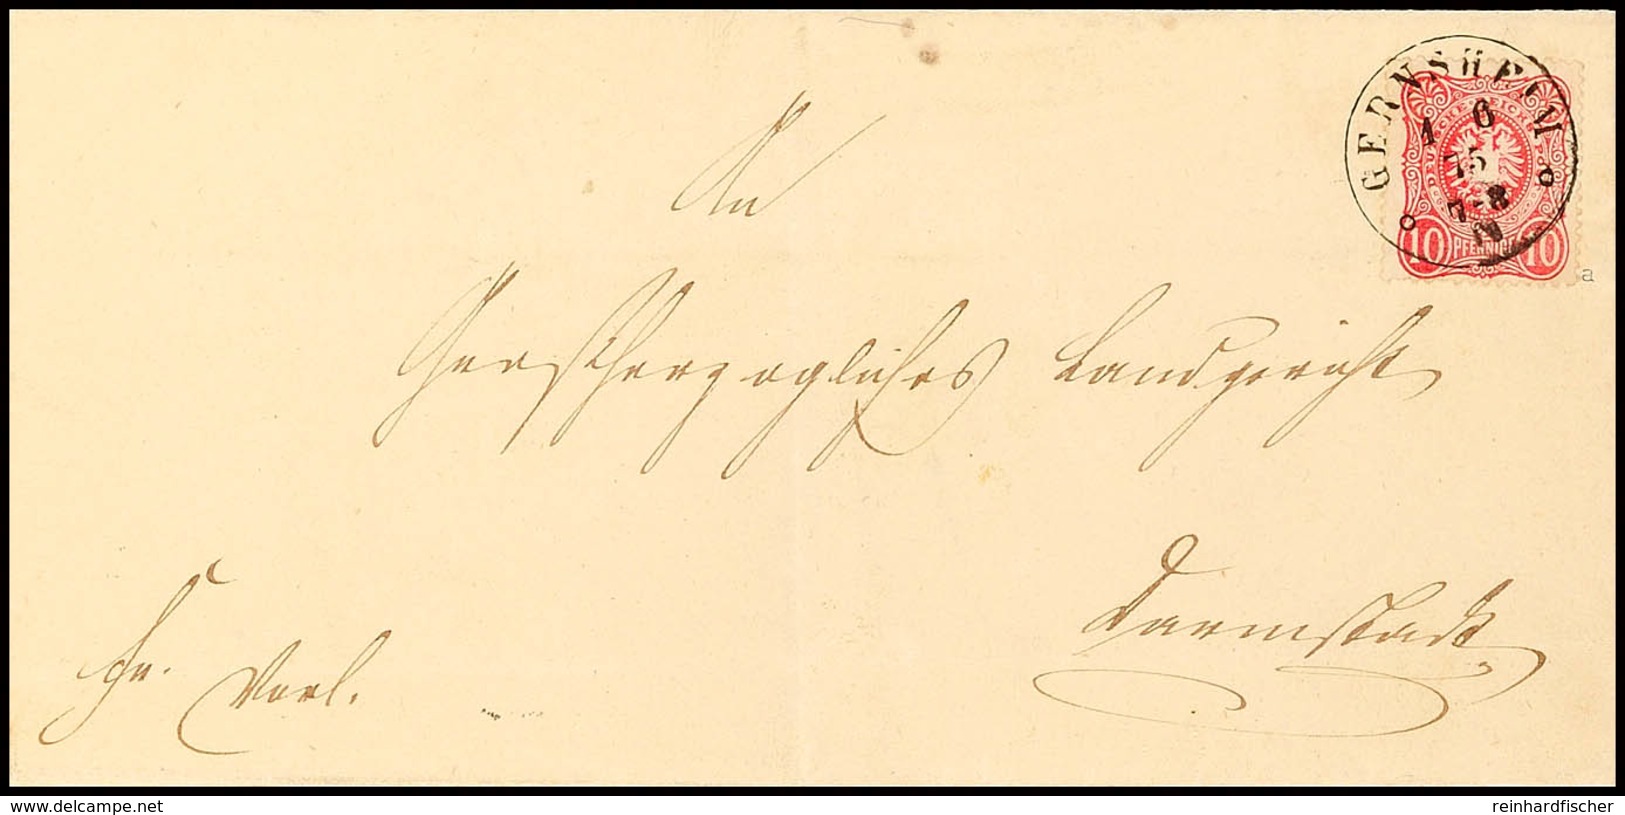 GERNSHEIM
1 6
75
7-8
N
DEUTSCHE REICHSPOST
10 PFENNIGE 10
a
An
Grossherzogliches Landgericht
Darmstadt
fr. Verl.
www.delcampe.net
reinhardfischer